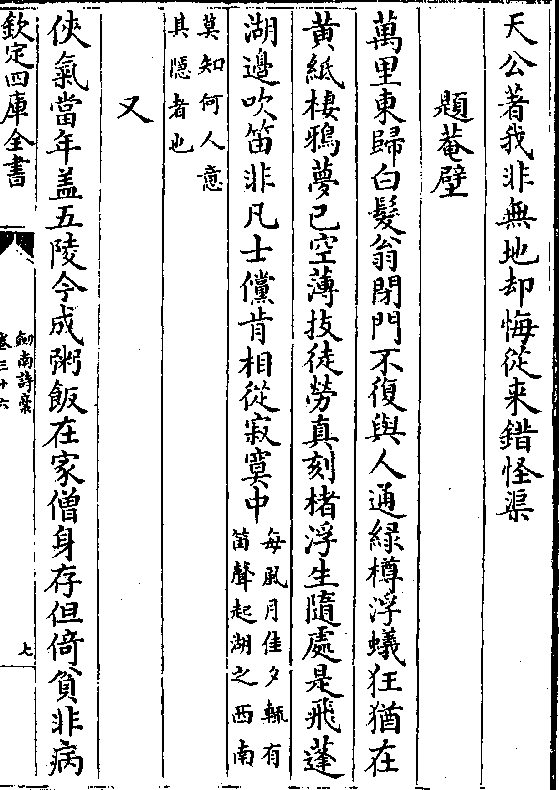 天公著我非無地却悔從来錯怪渠
題菴壁
萬里東歸白髮翁閉門不復與人通緑樽浮蟻狂猶在
黄紙棲鴉夢已空薄技徒勞真刻楮浮生隨處是飛蓬
湖邉吹笛非凡士儻肯相從寂寞中
每風月佳夕輙有
笛聲起湖之西南
莫知何人意
其隱者也
又
俠氣當年盖五陵今成粥飯在家僧身存但倚貧非病
欽定四庫全書
劍南詩稾
卷三十六
七